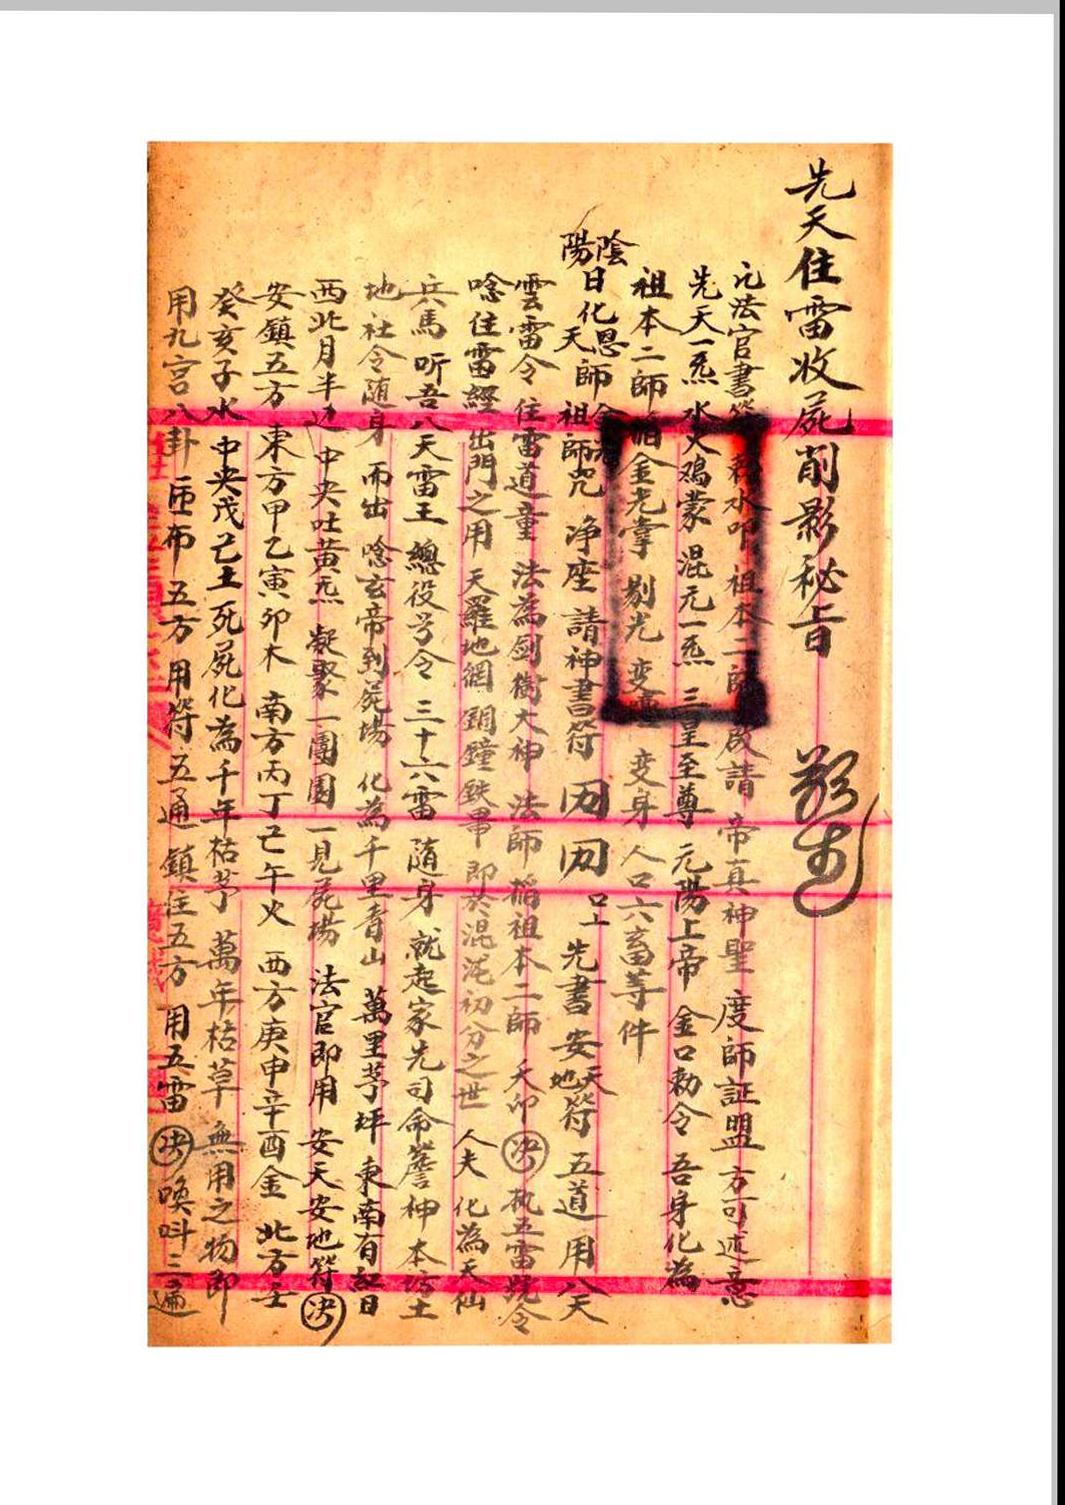 先天住雷收屍削影秘旨
凡法官書符 水叩 祖本二師 啟請 帝真神聖 度師証盟 方可述意
先天一炁 水火鴻蒙 混元一炁 三皇至尊 元陽上帝 金口勅令 吾身化為
祖本二師 金光 光 變 變身 人口六畜等件
陰陽日 化恩師 天師 祖師咒 净座 請神書符 口上 先書安天地符 五道 用八天
雲雷令 住雷道童 法為劍樹大神 法師稻祖本二師 天印 决 执五雷號令
唸住雷經 出門之用 天羅地網 銅鐘鉄 即於混沌初分之世 人夫化為天仙
兵馬 听吾八天雷王 總役号令 三十六雷 随身 就起家先司命 神 本坊土
地社令随身 而出 唸玄帝到屍場 化為千里青山 萬里茅坪 東南有紅日
西北月半边 中央吐黄炁 凝聚一團圓 一見屍場 法官即用 安天安地符 决
安鎮五方 東方甲乙寅卯木 南方丙丁巳午火 西方庚申辛酉金 北方壬
癸亥子水 中央戊己土 死屍化為千年枯茅 萬年枯草 無用之物 即
用九宫八卦 匝布 五方用符 五通 鎮住五方 用五雷 决 喚呌三遍